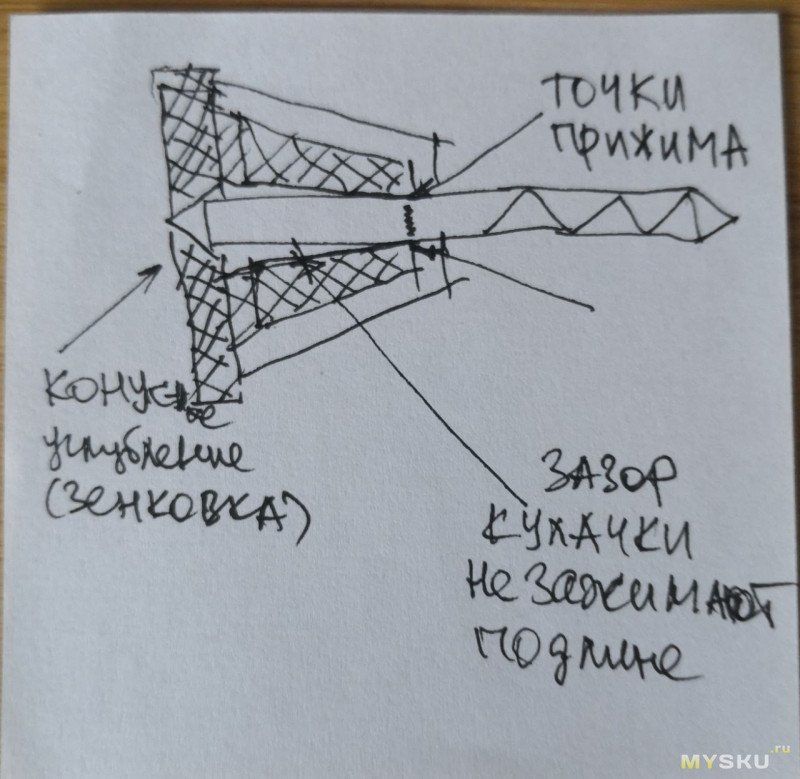 ТОЧКИ
ПРИЖИМА
КОНУСНое
углубление
(ЗЕНКОВКА)
ЗАЗОР
КУЛАЧКИ
не Зажимают
по длине
MYSKU.ru